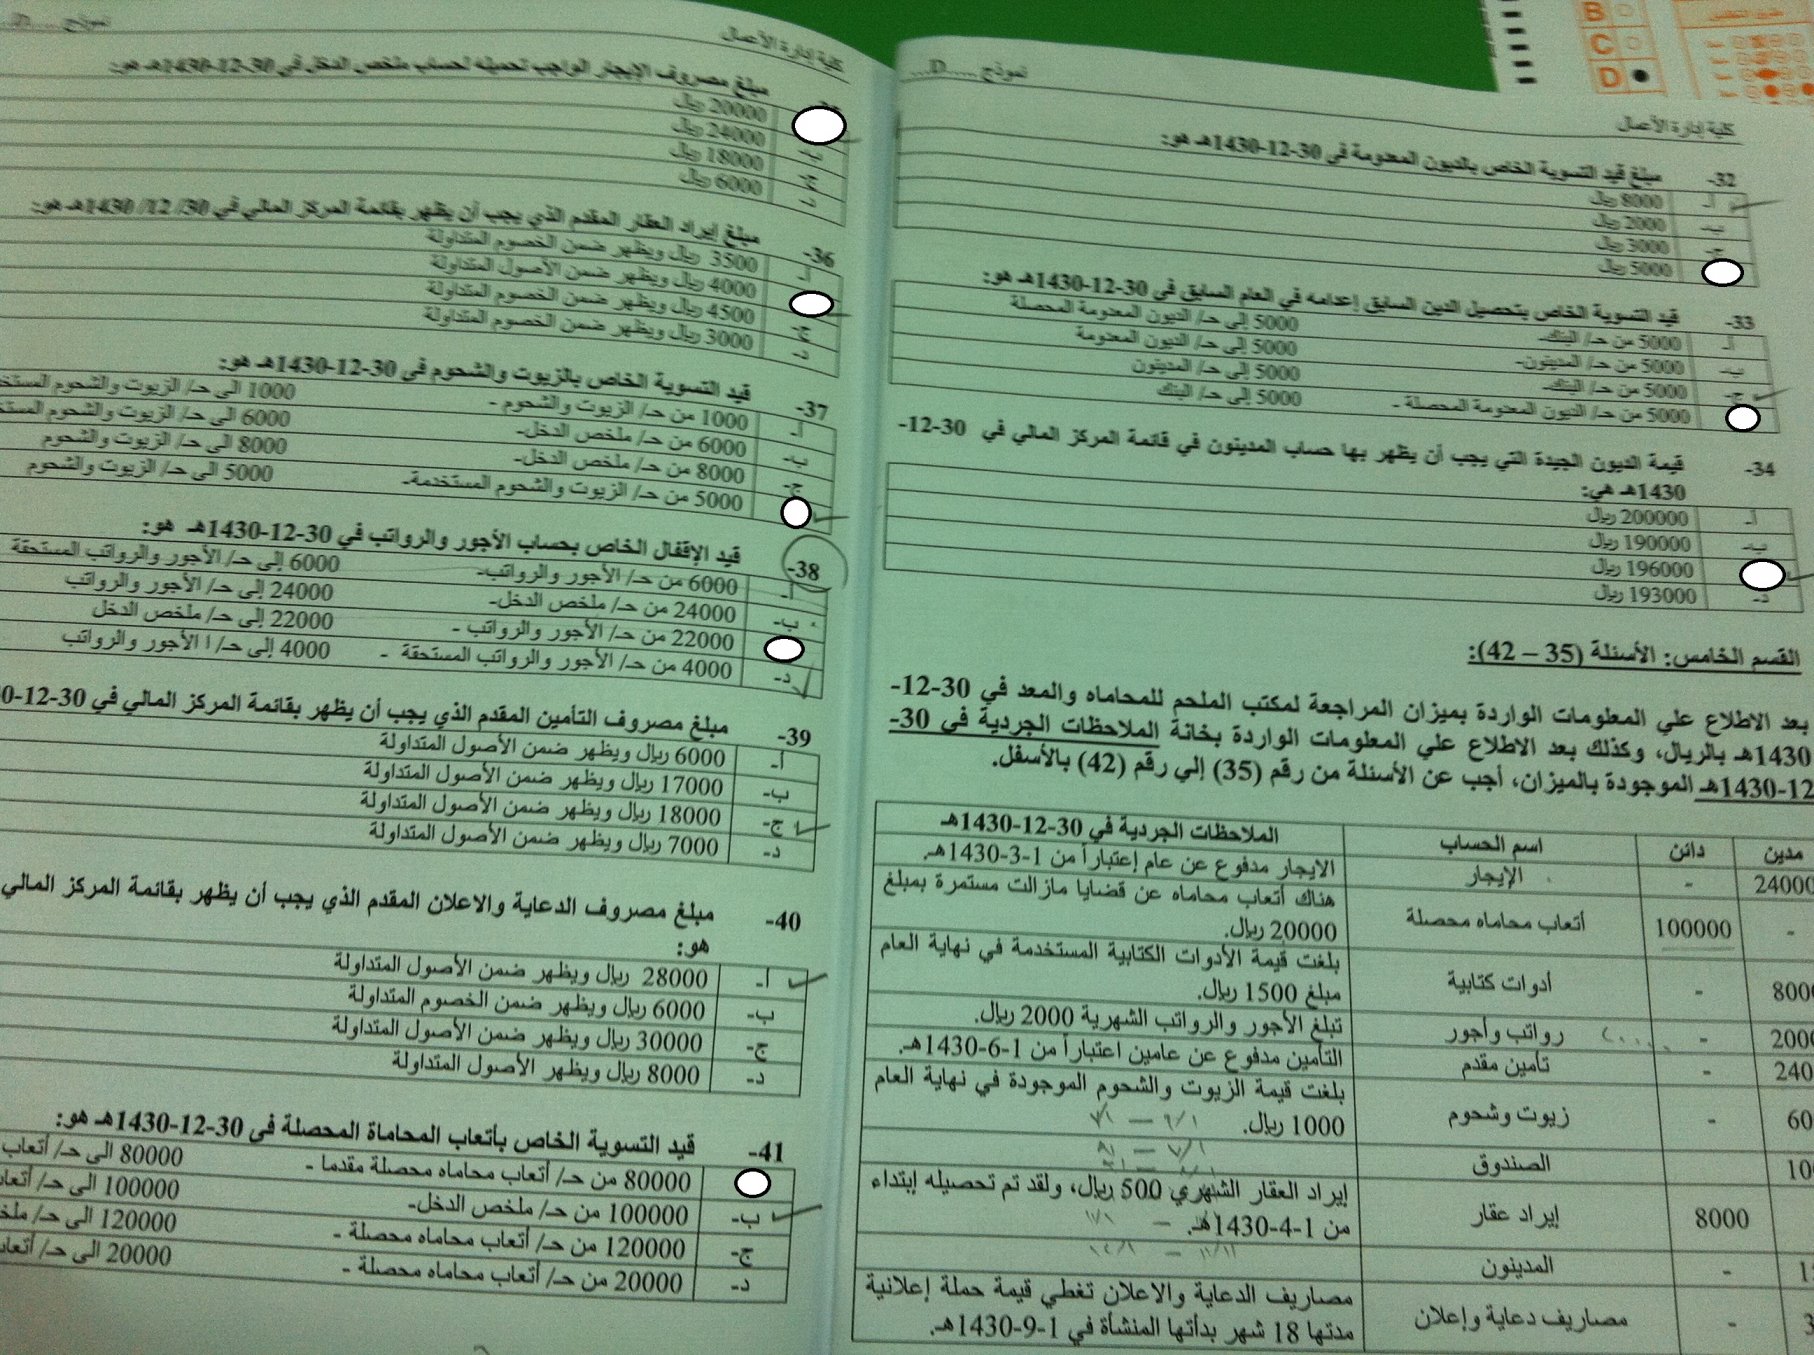 كلية إدارة الأعمال
نموذج.....D...
32- مبلغ قيد التسوية الخاص بالديون المعدومة في 30-12-1430هـ هو:
أ- 8000 ريال
ب- 2000 ريال
ج- 3000 ريال
5000 ريال
33- قيد التسوية الخاص بتحصيل الدين السابق إعدامه في العام السابق في 30-12-1430هـ هو:
أ- 5000 من حـ/ البنك- 5000 إلى حـ/ الديون المعدومة المحصلة
ب- 5000 من حـ/ المدينون- 5000 إلى حـ/ الديون المعدومة
ج- 5000 من حـ/ البنك- 5000 إلى حـ/ المدينون
5000 من حـ/ الديون المعدومة المحصلة - 5000 إلى حـ/ البنك
34- قيمة الديون الجيدة التي يجب أن يظهر بها حساب المدينون في قائمة المركز المالي في 30-12-
1430هـ هي:
أ- 200000 ريال
ب- 190000 ريال
196000 ريال
د- 193000 ريال
القسم الخامس: الأسئلة (35 – 42):
بعد الاطلاع علي المعلومات الواردة بميزان المراجعة لمكتب الملحم للمحاماه والمعد في 30-12-
1430هـ بالريال، وكذلك بعد الاطلاع علي المعلومات الواردة بخانة الملاحظات الجردية في 30-
12-1430هـ الموجودة بالميزان، أجب عن الأسئلة من رقم (35) إلي رقم (42) بالأسفل.
مدين دائن اسم الحساب الملاحظات الجردية في 30-12-1430هـ
24000 - الإيجار الايجار مدفوع عن عام إعتباراً من 1-3-1430هـ.
- 100000 أتعاب محاماه محصلة هناك أتعاب محاماه عن قضايا مازالت مستمرة بمبلغ
20000 ريال.
- أدوات كتابية بلغت قيمة الأدوات الكتابية المستخدمة في نهاية العام
مبلغ 1500 ريال.
- رواتب وأجور تبلغ الأجور والرواتب الشهرية 2000 ريال.
- تأمين مقدم التأمين مدفوع عن عامين اعتباراً من 1-6-1430هـ.
- زيوت وشحوم بلغت قيمة الزيوت والشحوم الموجودة في نهاية العام
1000 ريال.
الصندوق
8000 إيراد عقار إيراد العقار الشهري 500 ريال، ولقد تم تحصيله إبتداء
من 1-4-1430هـ.
- المدينون
- مصاريف دعاية وإعلان مصاريف الدعاية والاعلان تغطي قيمة حملة إعلانية
مدتها 18 شهر بدأتها المنشأة في 1-9-1430هـ.
كلية إدارة الأعمال
نموذج.....D...
مبلغ مصروف الإيجار الواجب تحميله لحساب ملخص الدخل في 30-12-1430هـ هو:
20000 ريال
ب- 24000 ريال
ج- 18000 ريال
د- 6000 ريال
36- مبلغ إيراد العقار المقدم الذي يجب أن يظهر بقائمة المركز المالي في 30/ 12/ 1430هـ هو:
أ- 3500 ريال ويظهر ضمن الخصوم المتداولة
4000 ريال ويظهر ضمن الأصول المتداولة
ج- 4500 ريال ويظهر ضمن الخصوم المتداولة
د- 3000 ريال ويظهر ضمن الخصوم المتداولة
37- قيد التسوية الخاص بالزيوت والشحوم في 30-12-1430هـ هو:
أ- 1000 من حـ/ الزيوت والشحوم - 1000 الى حـ/ الزيوت والشحوم
ب- 6000 من حـ/ ملخص الدخل- 6000 الى حـ/ الزيوت والشحوم
ج- 8000 من حـ/ ملخص الدخل- 8000 الى حـ/ الزيوت والشحوم
5000 من حـ/ الزيوت والشحوم المستخدمة- 5000 الى حـ/ الزيوت والشحوم
38- قيد الإقفال الخاص بحساب الأجور والرواتب في 30-12-1430هـ هو:
أ- 6000 من حـ/ الأجور والرواتب- 6000 إلى حـ/ الأجور والرواتب المستحقة
ب- 24000 من حـ/ ملخص الدخل- 24000 إلى حـ/ الأجور والرواتب
22000 من حـ/ الأجور والرواتب - 22000 إلى حـ/ ملخص الدخل
د- 4000 من حـ/ الأجور والرواتب المستحقة - 4000 إلى حـ/ ا الأجور والرواتب
39- مبلغ مصروف التأمين المقدم الذي يجب أن يظهر بقائمة المركز المالي في 30-12-
أ- 6000 ريال ويظهر ضمن الأصول المتداولة
ب- 17000 ريال ويظهر ضمن الأصول المتداولة
ج- 18000 ريال ويظهر ضمن الأصول المتداولة
د- 7000 ريال ويظهر ضمن الأصول المتداولة
40- مبلغ مصروف الدعاية والاعلان المقدم الذي يجب أن يظهر بقائمة المركز المالي
هو:
أ- 28000 ريال ويظهر ضمن الأصول المتداولة
ب- 6000 ريال ويظهر ضمن الخصوم المتداولة
ج- 30000 ريال ويظهر ضمن الأصول المتداولة
د- 8000 ريال ويظهر الأصول المتداولة
41- قيد التسوية الخاص بأتعاب المحاماة المحصلة في 30-12-1430هـ هو:
80000 من حـ/ أتعاب محاماه محصلة مقدما - 80000 الى حـ/ أتعاب
ب- 100000 من حـ/ ملخص الدخل- 100000 الى حـ/
ج- 120000 من حـ/ أتعاب محاماه محصلة - 120000 الى حـ/
د- 20000 من حـ/ أتعاب محاماه محصلة - 20000 الى حـ/
B
C
D